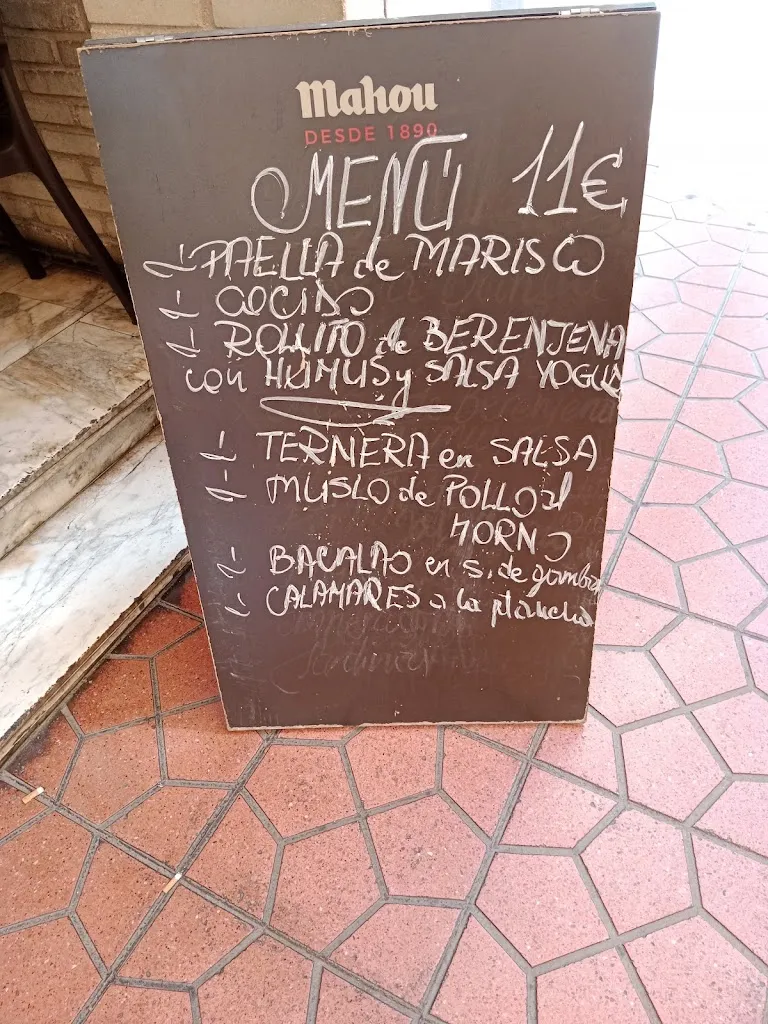 Mahou
DESDE 1890
MENÚ 11€
- PAELLA de MARISCO
- COCIDO
- ROLLITO de BERENJENA
con HUMUS y SALSA YOGUR
- TERNERA en SALSA
- MUSLO de POLLO al
HORNO
- BACALAO en S. de gambas
- CALAMARES a la plancha